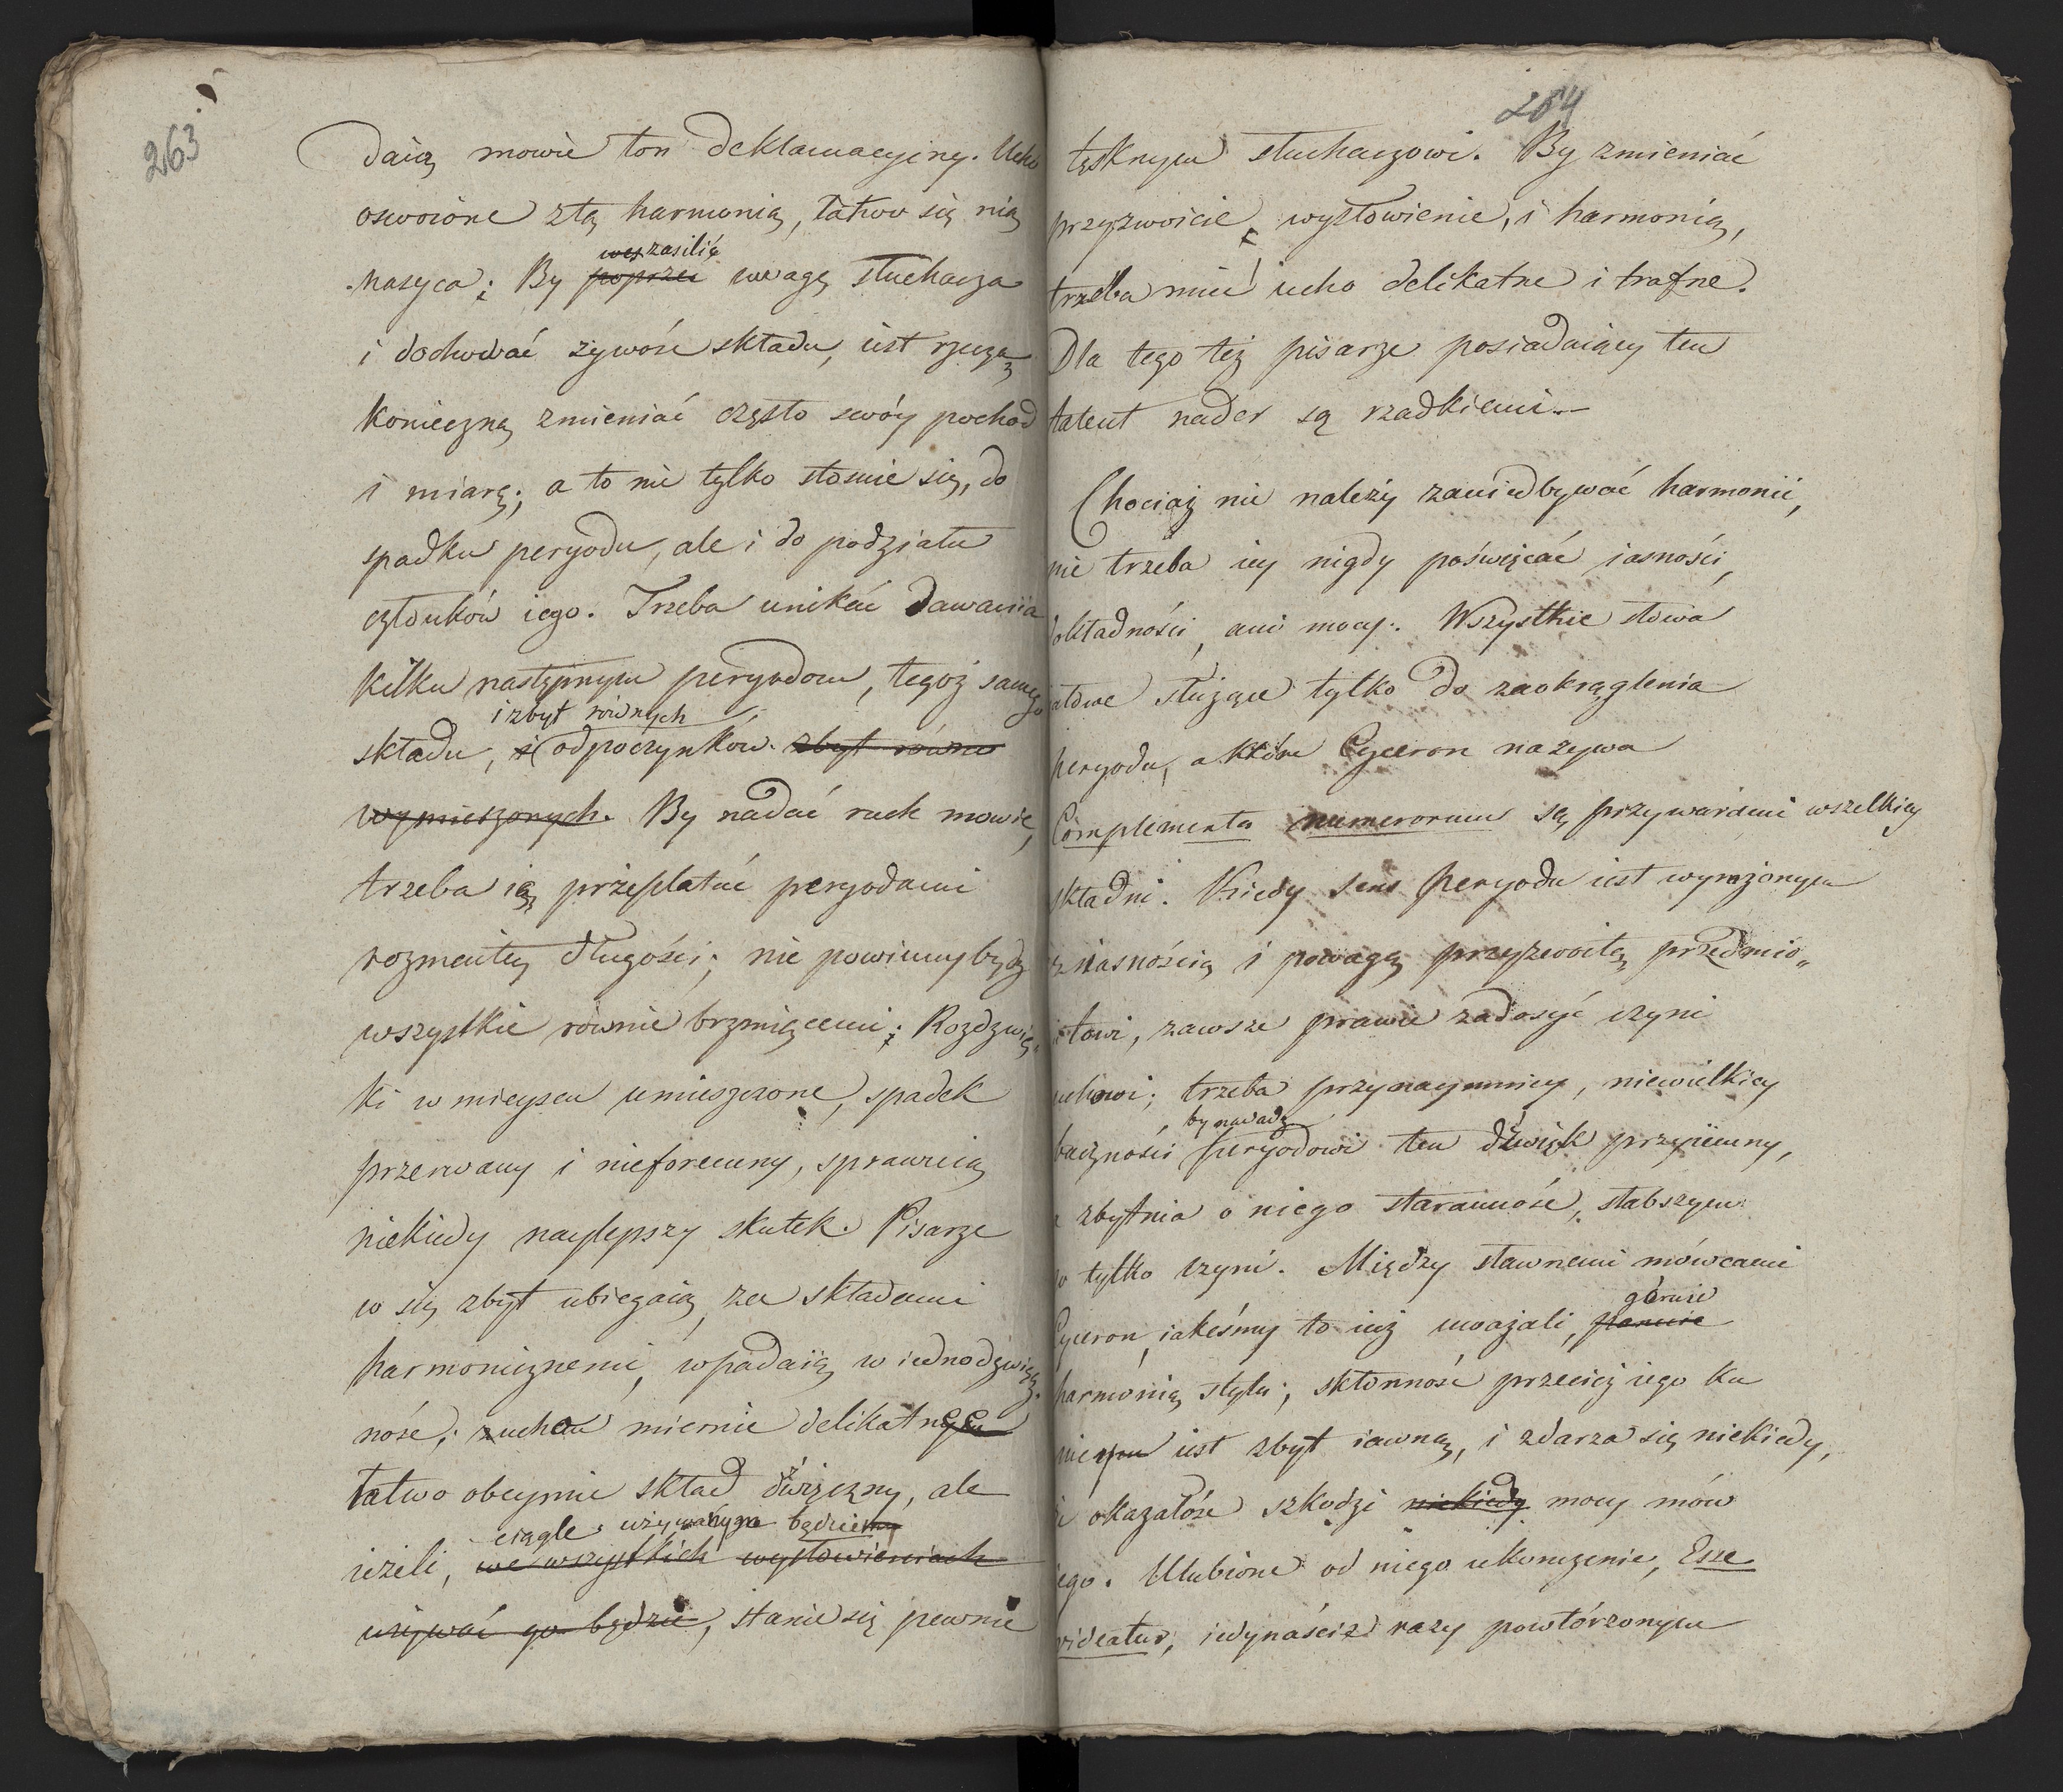 263
daią mowie ton deklamacyjny. Ucho
oswoione z tą harmonią, łatwo się nią
nasyca; By poprzeć weszasilić uwagę słuchacza
i dochować żywość składu, iest rzeczą
konieczną zmieniać często swóy pochod
i miarę; a to nie tylko stosuie się, do
spadku peryodu, ale i do podziału
członków iego. Trzeba unikać dawania
kilku następnym peryodom, tegoż samego
i zbyt równych
składu, i odpoczynków. zbyt równo
wymieszonych. By nadać ruch mowie,
trzeba ią przeplatać peryodami
rozmaitey długości; nie powinny bydź
wszystkie równie brzmiącemi; Rozdzwię-
ki w mieyscu umieszczone, spadek
przerwany i nieforemny, sprawuią
niekiedy naylepszy skutek. Pisarze
co się zbyt ubiegaią za składami
harmonicznemi, wpadaią w iednodzwięcz-
ność; ucho miernie delikatne
łatwo obeymie skład dźwięczny, ale
ciągle używanym będzie
ieżeli, we wszystkich wysłowieniach
używać go będzie, stanie się pewnie
264
tęsknym słuchaczowi. By zmieniać
przyzwoicie wysłowienie, i harmonią,
trzeba mieć ucho delikatne i trafne.
Dla tego też pisarze posiadaiący ten
talent nader są rzadkiemi.
Chociaż nie należy zaniedbywać harmonii,
nie trzeba iey nigdy poświęcać iasności,
dokładności, ani mocy. Wszystkie słowa
iałowe służące tylko do zaokrąglenia
peryodu, a które Cyceron nazywa
Complementa numerorum są przywarami wszelkiey
składni. Kiedy sens peryodu iest wyrażonym
z iasnością i powagą przyzwoitą przedmio„
towi, zawsze prawie zadosyć czyni
uchowi; trzeba przynaymniey, niewielkiey
, by nadadź
baczności peryodowi ten dźwięk przyiemny,
a zbytnia o niego staranność, słabszym
go tylko czyni. Między sławnemi mówcami
góruie
Cyceron, iakeśmy to iuż uważali, panuie
harmonią stylu; skłonność przecież iego ku
niey iest zbyt iawną, i zdarza się niekiedy,
że okazałość szkodzi niekiedy mocy mów
iego. Ulubione od niego ukończenie, Esse
videatur, iedynaście razy powtórzonym